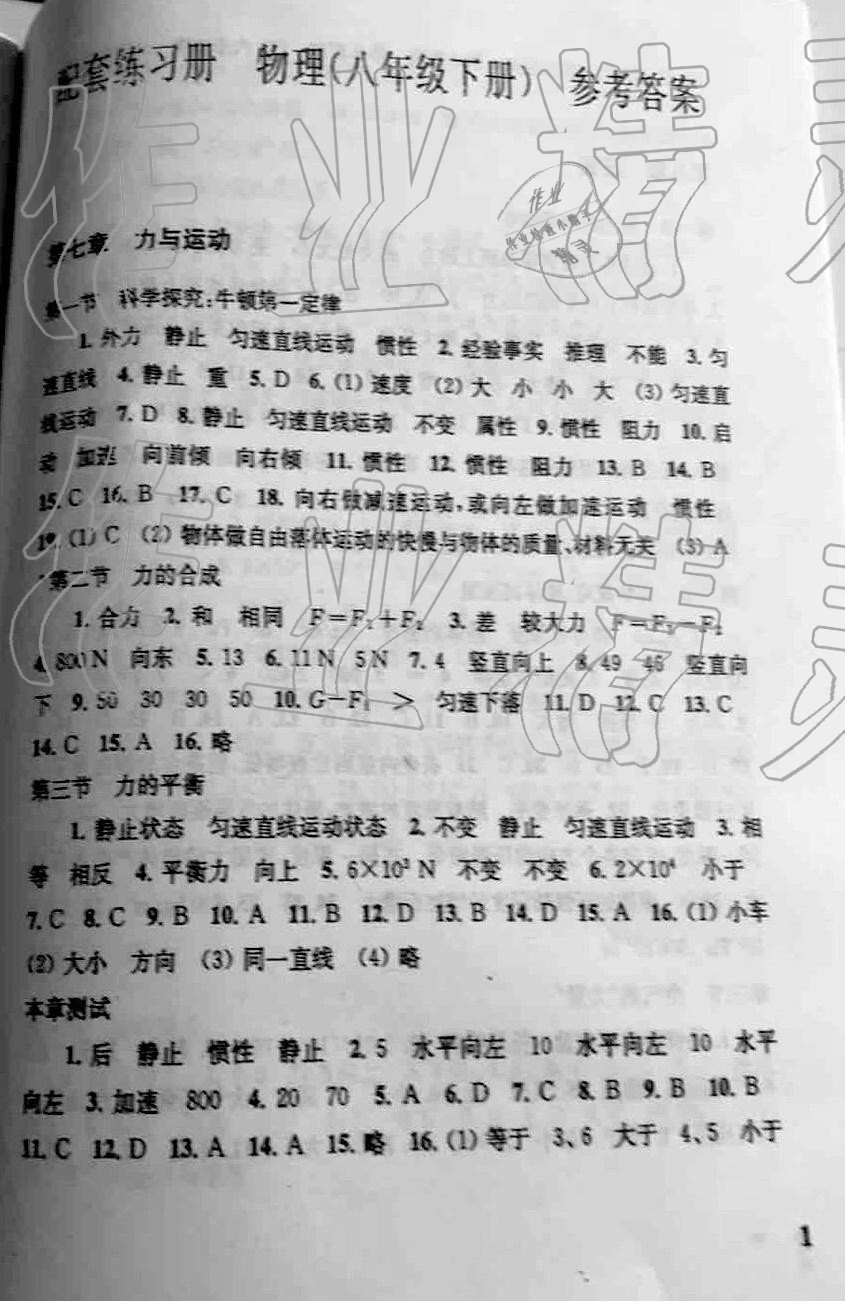 配套练习册 物理(八年级下册) 参考答案
作业精灵
作业
作业检查小助手
精灵
第七章 力与运动
第一节 科学探究:牛顿第一定律
1. 外力 静止 匀速直线运动 惯性 2. 经验事实 推理 不能 3. 匀
速直线 4. 静止 重 5. D 6. (1) 速度 (2) 大 小 小 大 (3) 匀速直
线运动 7. D 8. 静止 匀速直线运动 不变 属性 9. 惯性 阻力 10. 启
动 加速 向前倾 向右倾 11. 惯性 12. 惯性 阻力 13. B 14. B
15. C 16. B 17. C 18. 向右做减速运动,或向左做加速运动 惯性
19. (1) C (2) 物体做自由落体运动的快慢与物体的质量、材料无关 (3) A
第二节 力的合成
1. 合力 2. 和 相同 F=F₁+F₂ 3. 差 较大力 F=F₁-F₂
4. 800 N 向东 5. 13 6. 11 N 5 N 7. 4 竖直向上 8. 49 46 竖直向
下 9. 50 30 30 50 10. G-F₁ > 匀速下落 11. D 12. C 13. C
14. C 15. A 16. 略
第三节 力的平衡
1. 静止状态 匀速直线运动状态 2. 不变 静止 匀速直线运动 3. 相
等 相反 4. 平衡力 向上 5. 6×10³ N 不变 不变 6. 2×10⁴ 小于
7. C 8. C 9. B 10. A 11. B 12. D 13. B 14. D 15. A 16. (1) 小车
(2) 大小 方向 (3) 同一直线 (4) 略
本章测试
1. 后 静止 惯性 静止 2. 5 水平向左 10 水平向左 10 水平
向左 3. 加速 800 4. 20 70 5. A 6. D 7. C 8. B 9. B 10. B
11. C 12. D 13. A 14. A 15. 略 16. (1) 等于 3、6 大于 4、5 小于
1